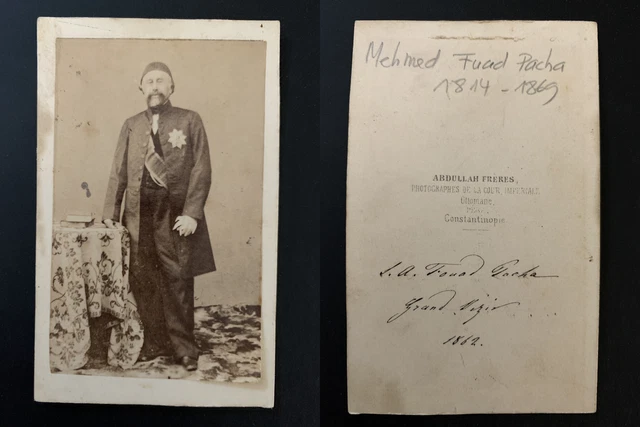 Mehmed Fuad Pacha
1814 - 1869
ABDULLAH FRERES,
PHOTOGRAPHES DE LA COUR IMPERIALE,
Ottomane,
Constantinople
S. A. Fouad Pacha
Grand Vizir
1862.